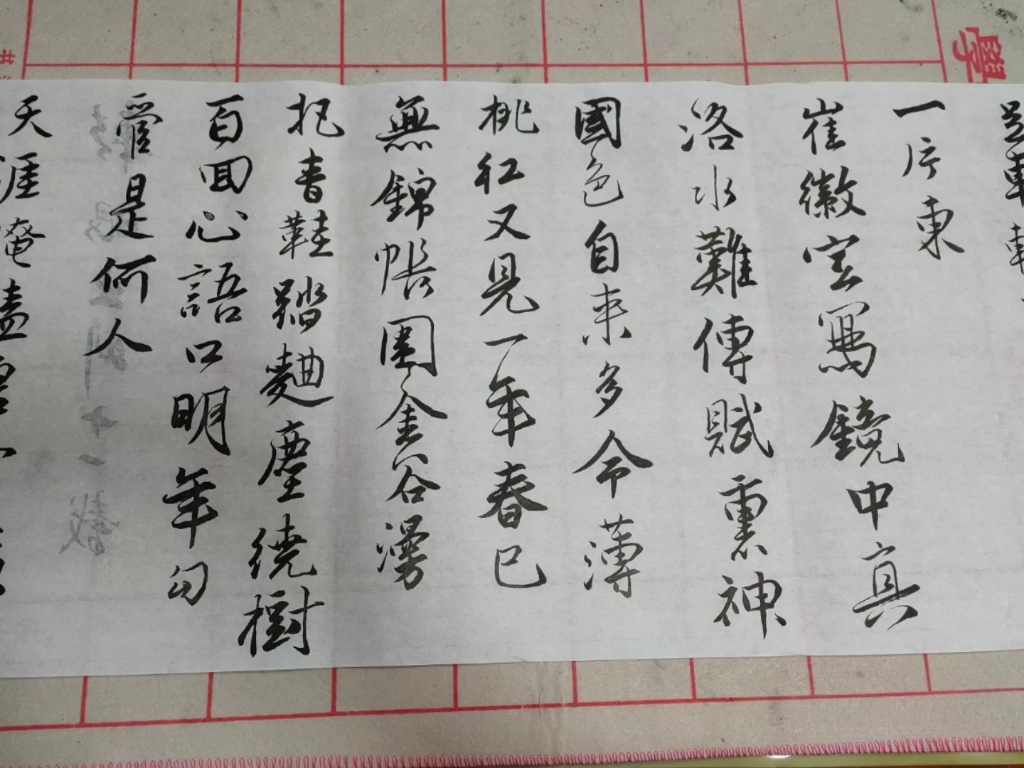 學
車
一片東
崔徽空寫鏡中真
洛水難傳賦裏神
國色自来多命薄
桃紅又見一年春已
無錦帳圍金谷漫
把青鞋踏麴塵繞樹
百回心語口明年勾
管是何人
天涯淹盡